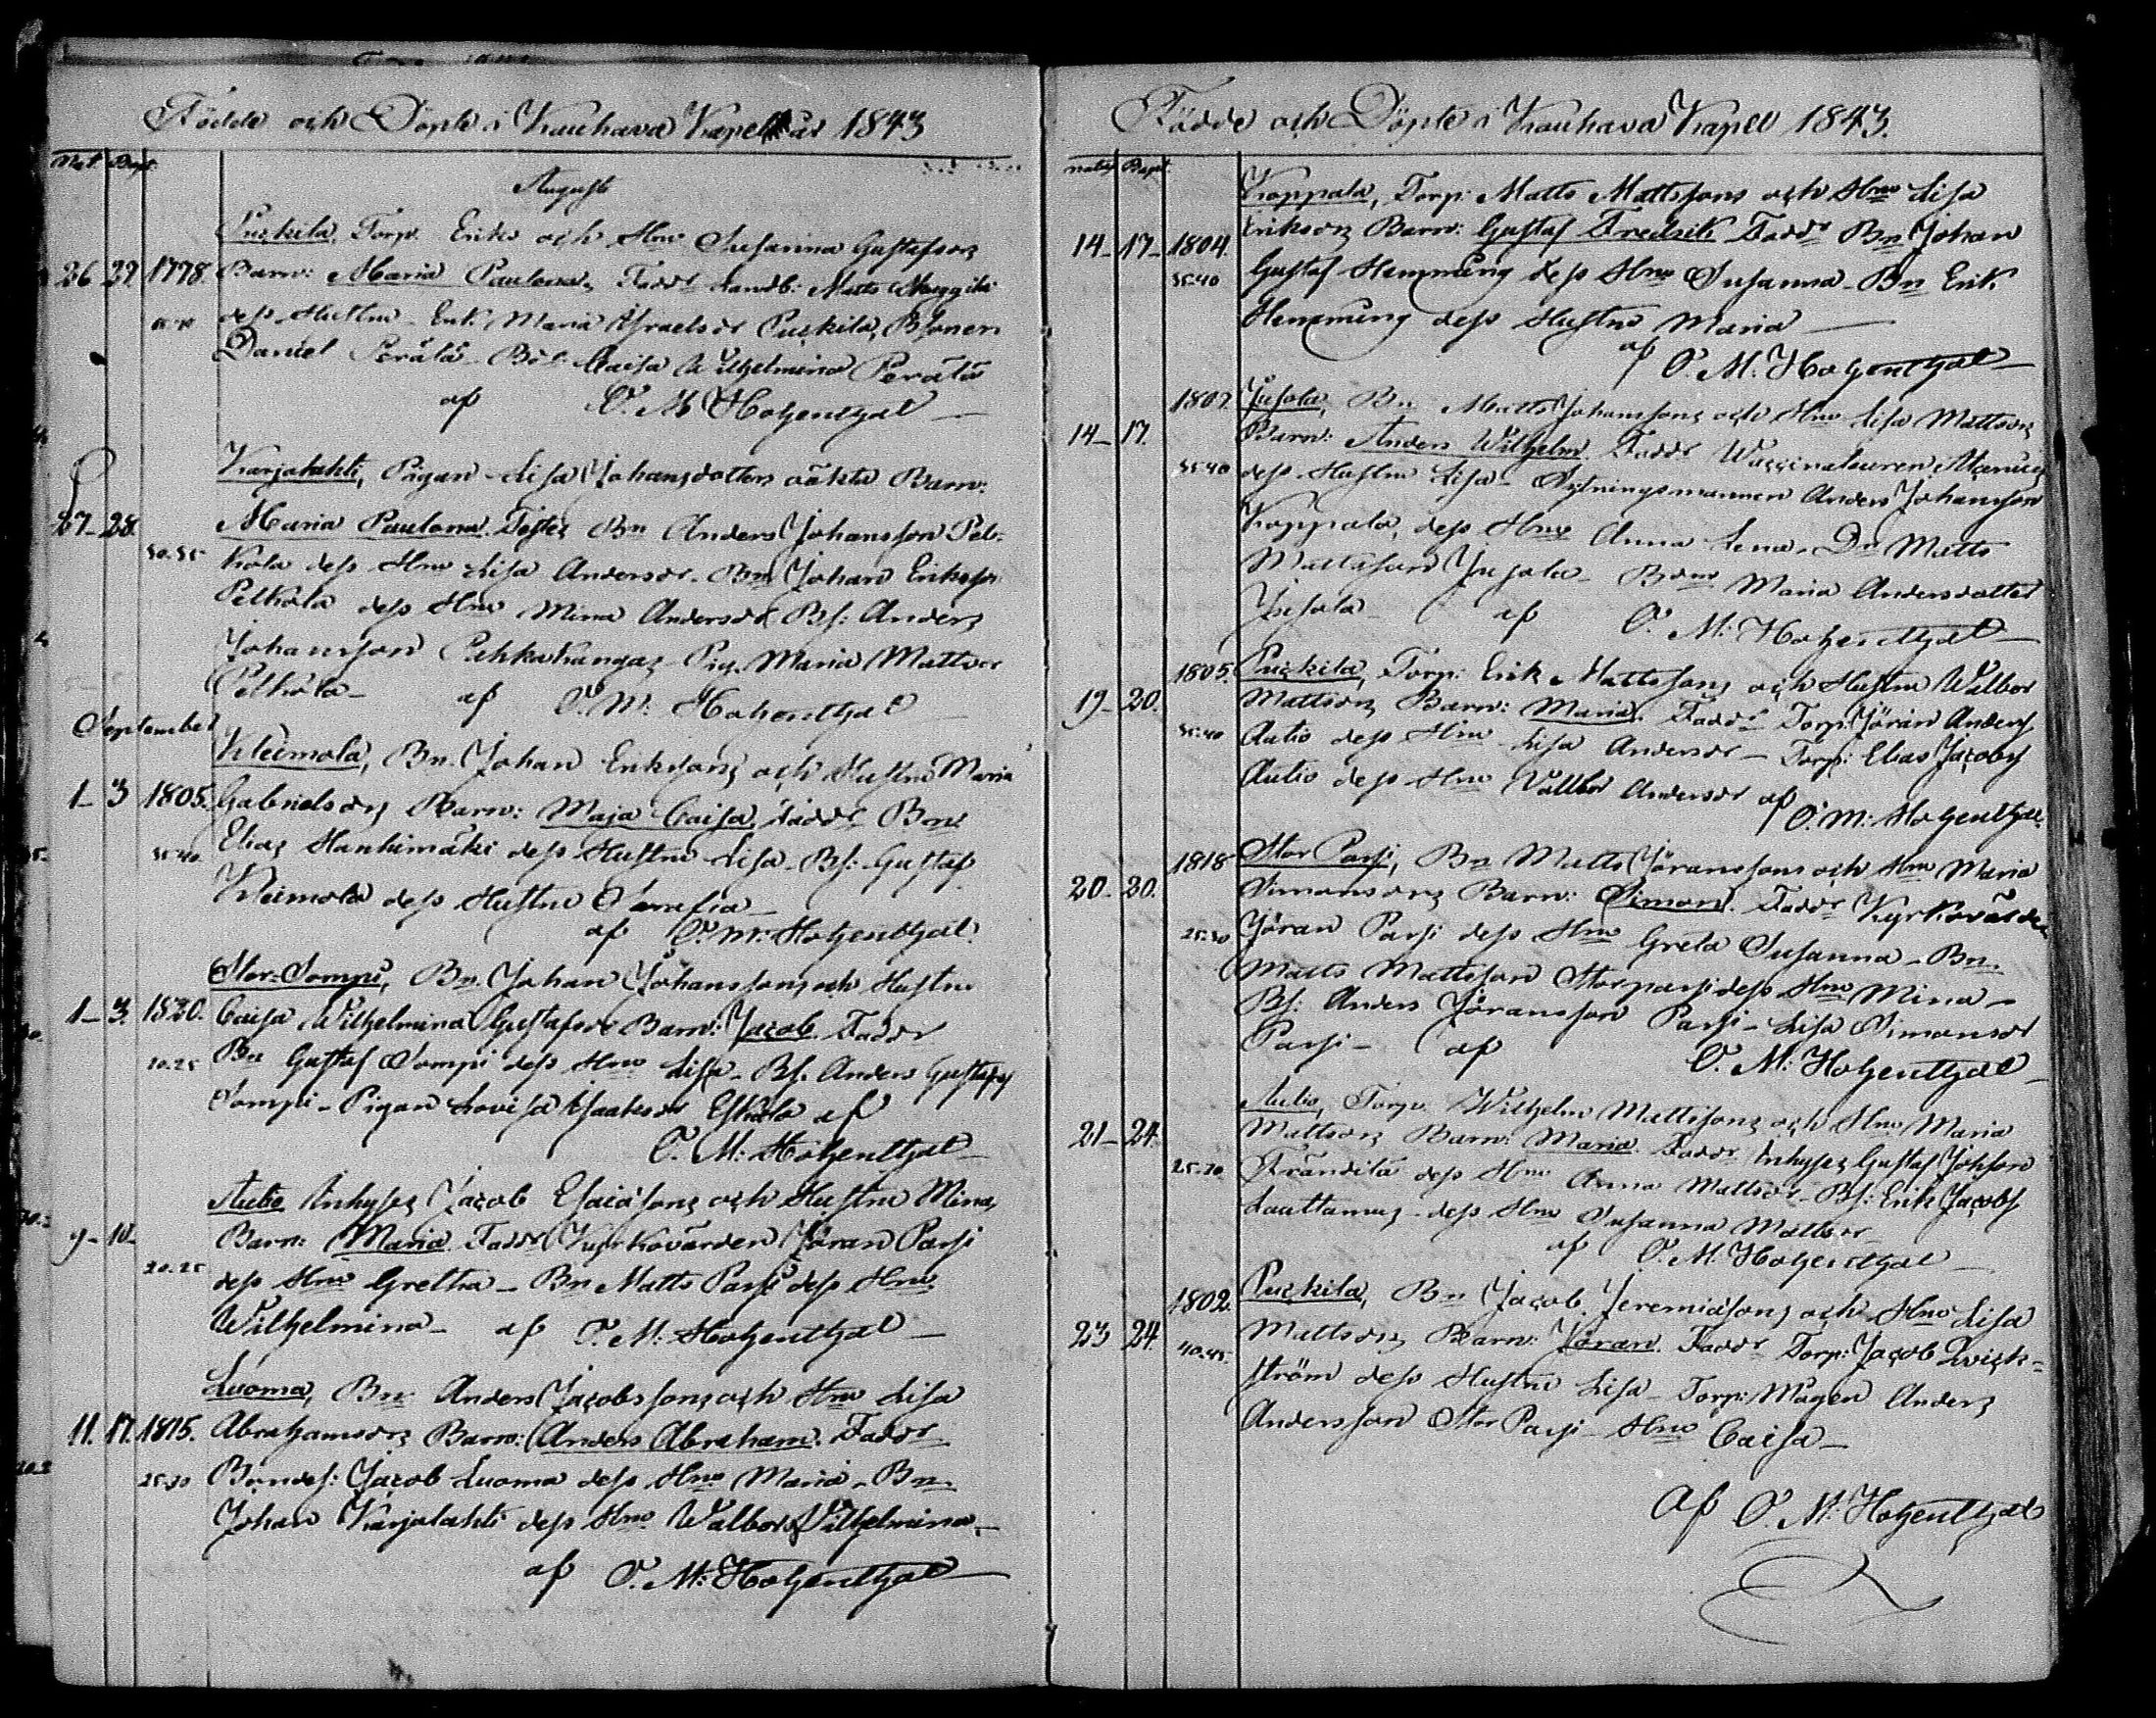 Födde och Döpte i Kauhava Kapell år 1843
Nat. Bapt.
Augusti
Puskila, Torp. Eriks och Hru Susanna Gustafsdrs
26 29. 1798. Barn: Maria Paulona, Faddr Landb: Matts
dess Hustru Erik Maria Israelsdr Puskila, Bsonen
Daniel Perälä Bdr Caisa Wilhelmina Perälä
af O. M. Hohenthal
Karjalahti, Pigan Lisa Johansdotters oäkta Barn:
27-28. Maria Paulona. Testes Bn Anders Johansson Pel-
50.55 kola dess Hru Lisa Andersdr. Bn Johan Eriksson
Pelkola dess Hru Mina Andersdr Bs: Anders
Johansson Pahkakangas Pig. Maria Mattsdr
Pelkola af O. M. Hohenthal
September
Kleimola, Bn. Johan Erikssons och Hustru Maria
1-3 1805. Gabrielsdrs Barn: Maja Caisa, Faddr Bn
35.40 Elias Hanhimäki dess Hustru Lisa Bs: Gustaf
Kleimola dess Hustru Serafia
af O. M. Hohenthal.
Stor-Sompi, Bn. Johan Johanssons och Hustru
1-3. 1820. Caisa Wilhelmina Gustafsdr Barn: Jacob Faddr
20.25 Bn Gustaf Sompi dess Hru Lisa Bs. Anders Gustafss
Sompi Pigan Lovisa Isaaksdr Eskola af
O. M. Hohenthal
Autio Inhyses Jacob Esaiasons och Hustru Minas
9-10- Barn: Maria Faddr Kyrkovärden Jöran Passi
20.25 dess Hru Gretha Bn Matts Passi dess Hru
Wilhelmina af O. M. Hohenthal
Luoma, Bn Anders Jacobssons och Hru Lisa
11. 17. 1815. Abrahamsdrs Barn: Anders Abraham. Faddr
25.30 Bondes: Jacob Luoma dess Hru Maria Bn
Johan Karjalahti dess Hru Walborg Wilhelmina
af O. M. Hohenthal
Födde och Döpte i Kauhava Kapell 1843.
natus Bapt.
Koppala, Torp: Matts Mattssons och Hru Lisa
14-17- 1804. Eriksdrs Barn: Gustaf Fredrik Faddr Bn Johan
35-40 Gustaf Hemming dess Hru Susanna Bn Erik
Hemming dess Hustru Maria
af O. M. Hohenthal
1807. Jusola, Bn Matts Johanssons och Hru Lisa Mattsdrs
14-17. Barn: Anders Wilhelm Faddr Waccinateuren
35-40 dess Hustru Lisa Rytningsmannen Anders Johansson
Koppala, dess Hru Anna Lena, Dr Matts
Mattsson Jusola Bdr Maria Andersdotter
Jusola af O. M. Hohenthal
1805. Puskila, Torp: Erik Mattssons och Hustru Walbor
19-20. Mattsdrs Barn: Maria. Faddr Torp: Jöran Anderss
35.40 Autio dess Hru Lisa Andersdr Torp: Elias Jacobss
Autio dess Hru Valbor Andersdr af
O. M. Hohenthal.
1818 Stor Passi, Bn Matts Jöranssons och Hru Maria
20-20. Simonsdrs Barn: Simon. Faddr Kyrkovärden
25.30 Jöran Passi dess Hru Greta Susanna Bn.
Matts Mattsson Storpassi dess Hru Mina
Bs: Anders Jöransson Passi Lisa Simonsdr
Passi af O. M. Hohenthal
Autio, Torp. Wilhelm Mattssons och Hru Maria
21-24. Mattsdrs Barn: Maria Faddr Inhyses Gustaf Johsson
25.30 Frändilä dess Hru Anna Mattsdr Bs: Erik Jacobss
Lauttamus dess Hru Susanna Mattsdr
af O. M. Hohenthal
1802. Puskila, Bn Jacob Jeremiasons och Hru Lisa
23 24. Mattsdrs Barn: Jöran. Faddr Torp: Jacob Qvick-
40.45. ström dess Hustru Lisa Torp: Mågen Anders
Andersson Stor Passi Hru Caisa
af O. M. Hohenthal